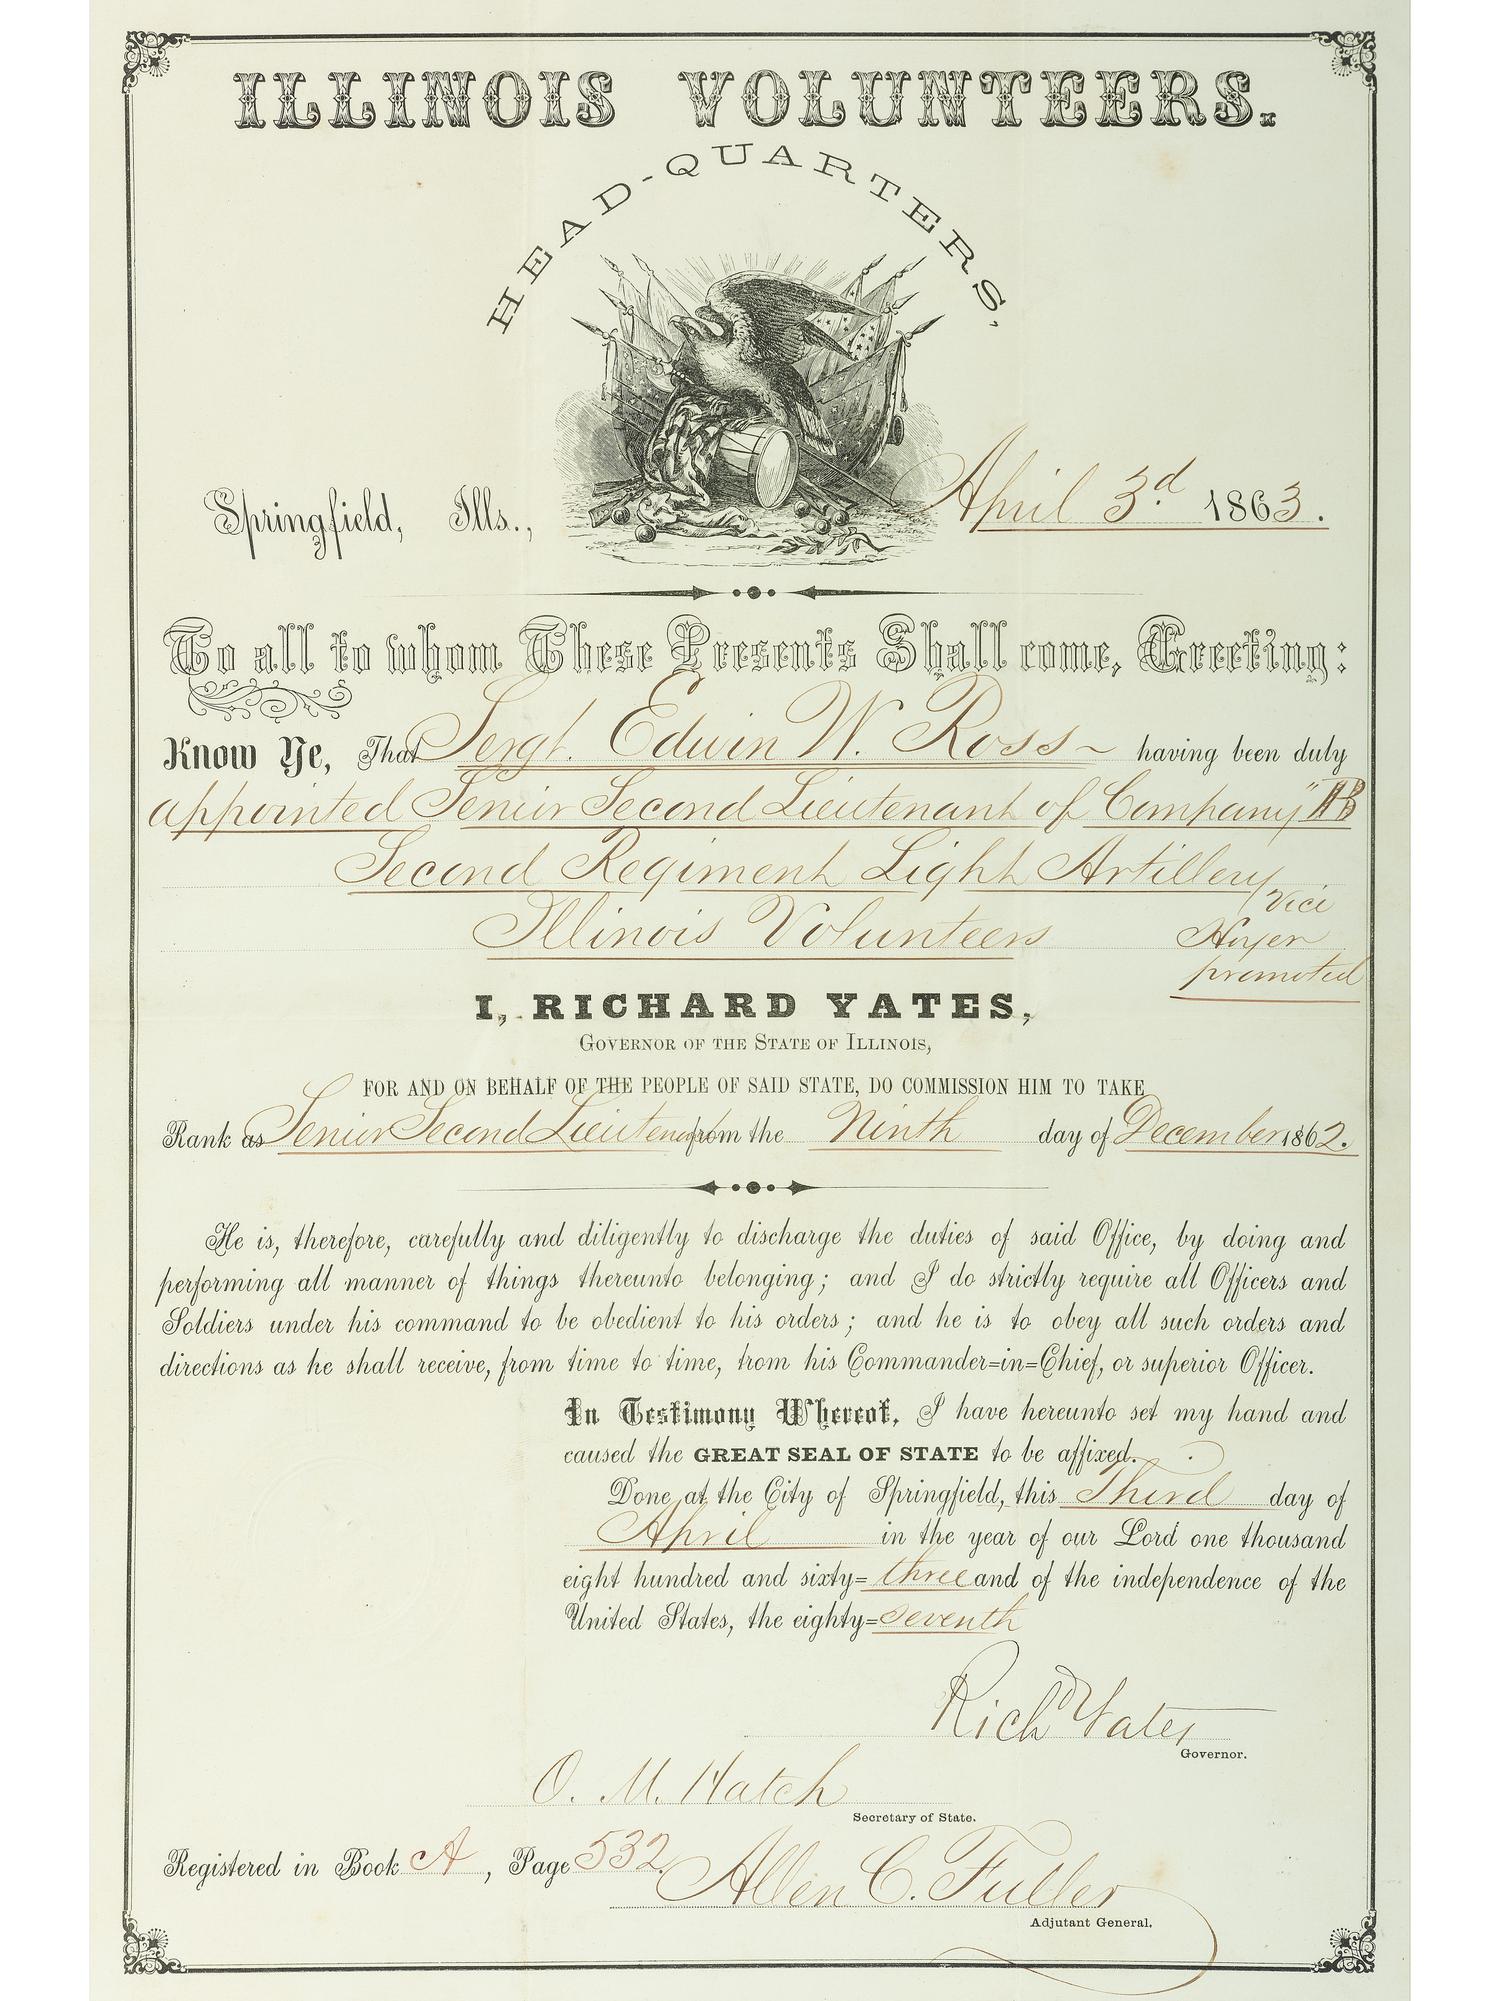 ILLINOIS VOLUNTEERS.
HEAD-QUARTERS,
Springfield, Ills., April 3.d 1863.
To all to whom These Presents Shall come, Greeting:
Know Ye, That Sergt. Edwin W. Ross having been duly
appointed Senior Second Lieutenant of Company
Second Regiment Light Artillery
Illinois Volunteers
vice
Hoyer
promoted
I, RICHARD YATES,
GOVERNOR OF THE STATE OF ILLINOIS,
FOR AND ON BEHALF OF THE PEOPLE OF SAID STATE, DO COMMISSION HIM TO TAKE
Rank as Senior Second Lieutenant from the Ninth day of December 1862.
He is, therefore, carefully and diligently to discharge the duties of said Office, by doing and
performing all manner of things thereunto belonging; and I do strictly require all Officers and
Soldiers under his command to be obedient to his orders; and he is to obey all such orders and
directions as he shall receive, from time to time, from his Commander=in=Chief, or superior Officer.
In Testimony Whereof, I have hereunto set my hand and
caused the GREAT SEAL OF STATE to be affixed.
Done at the City of Springfield, this Third day of
April in the year of our Lord one thousand
eight hundred and sixty=three and of the independence of the
United States, the eighty=seventh
Richd Yates
Governor.
O. M. Hatch
Secretary of State.
Registered in Book A, Page 532.
Allen C. Fuller
Adjutant General.